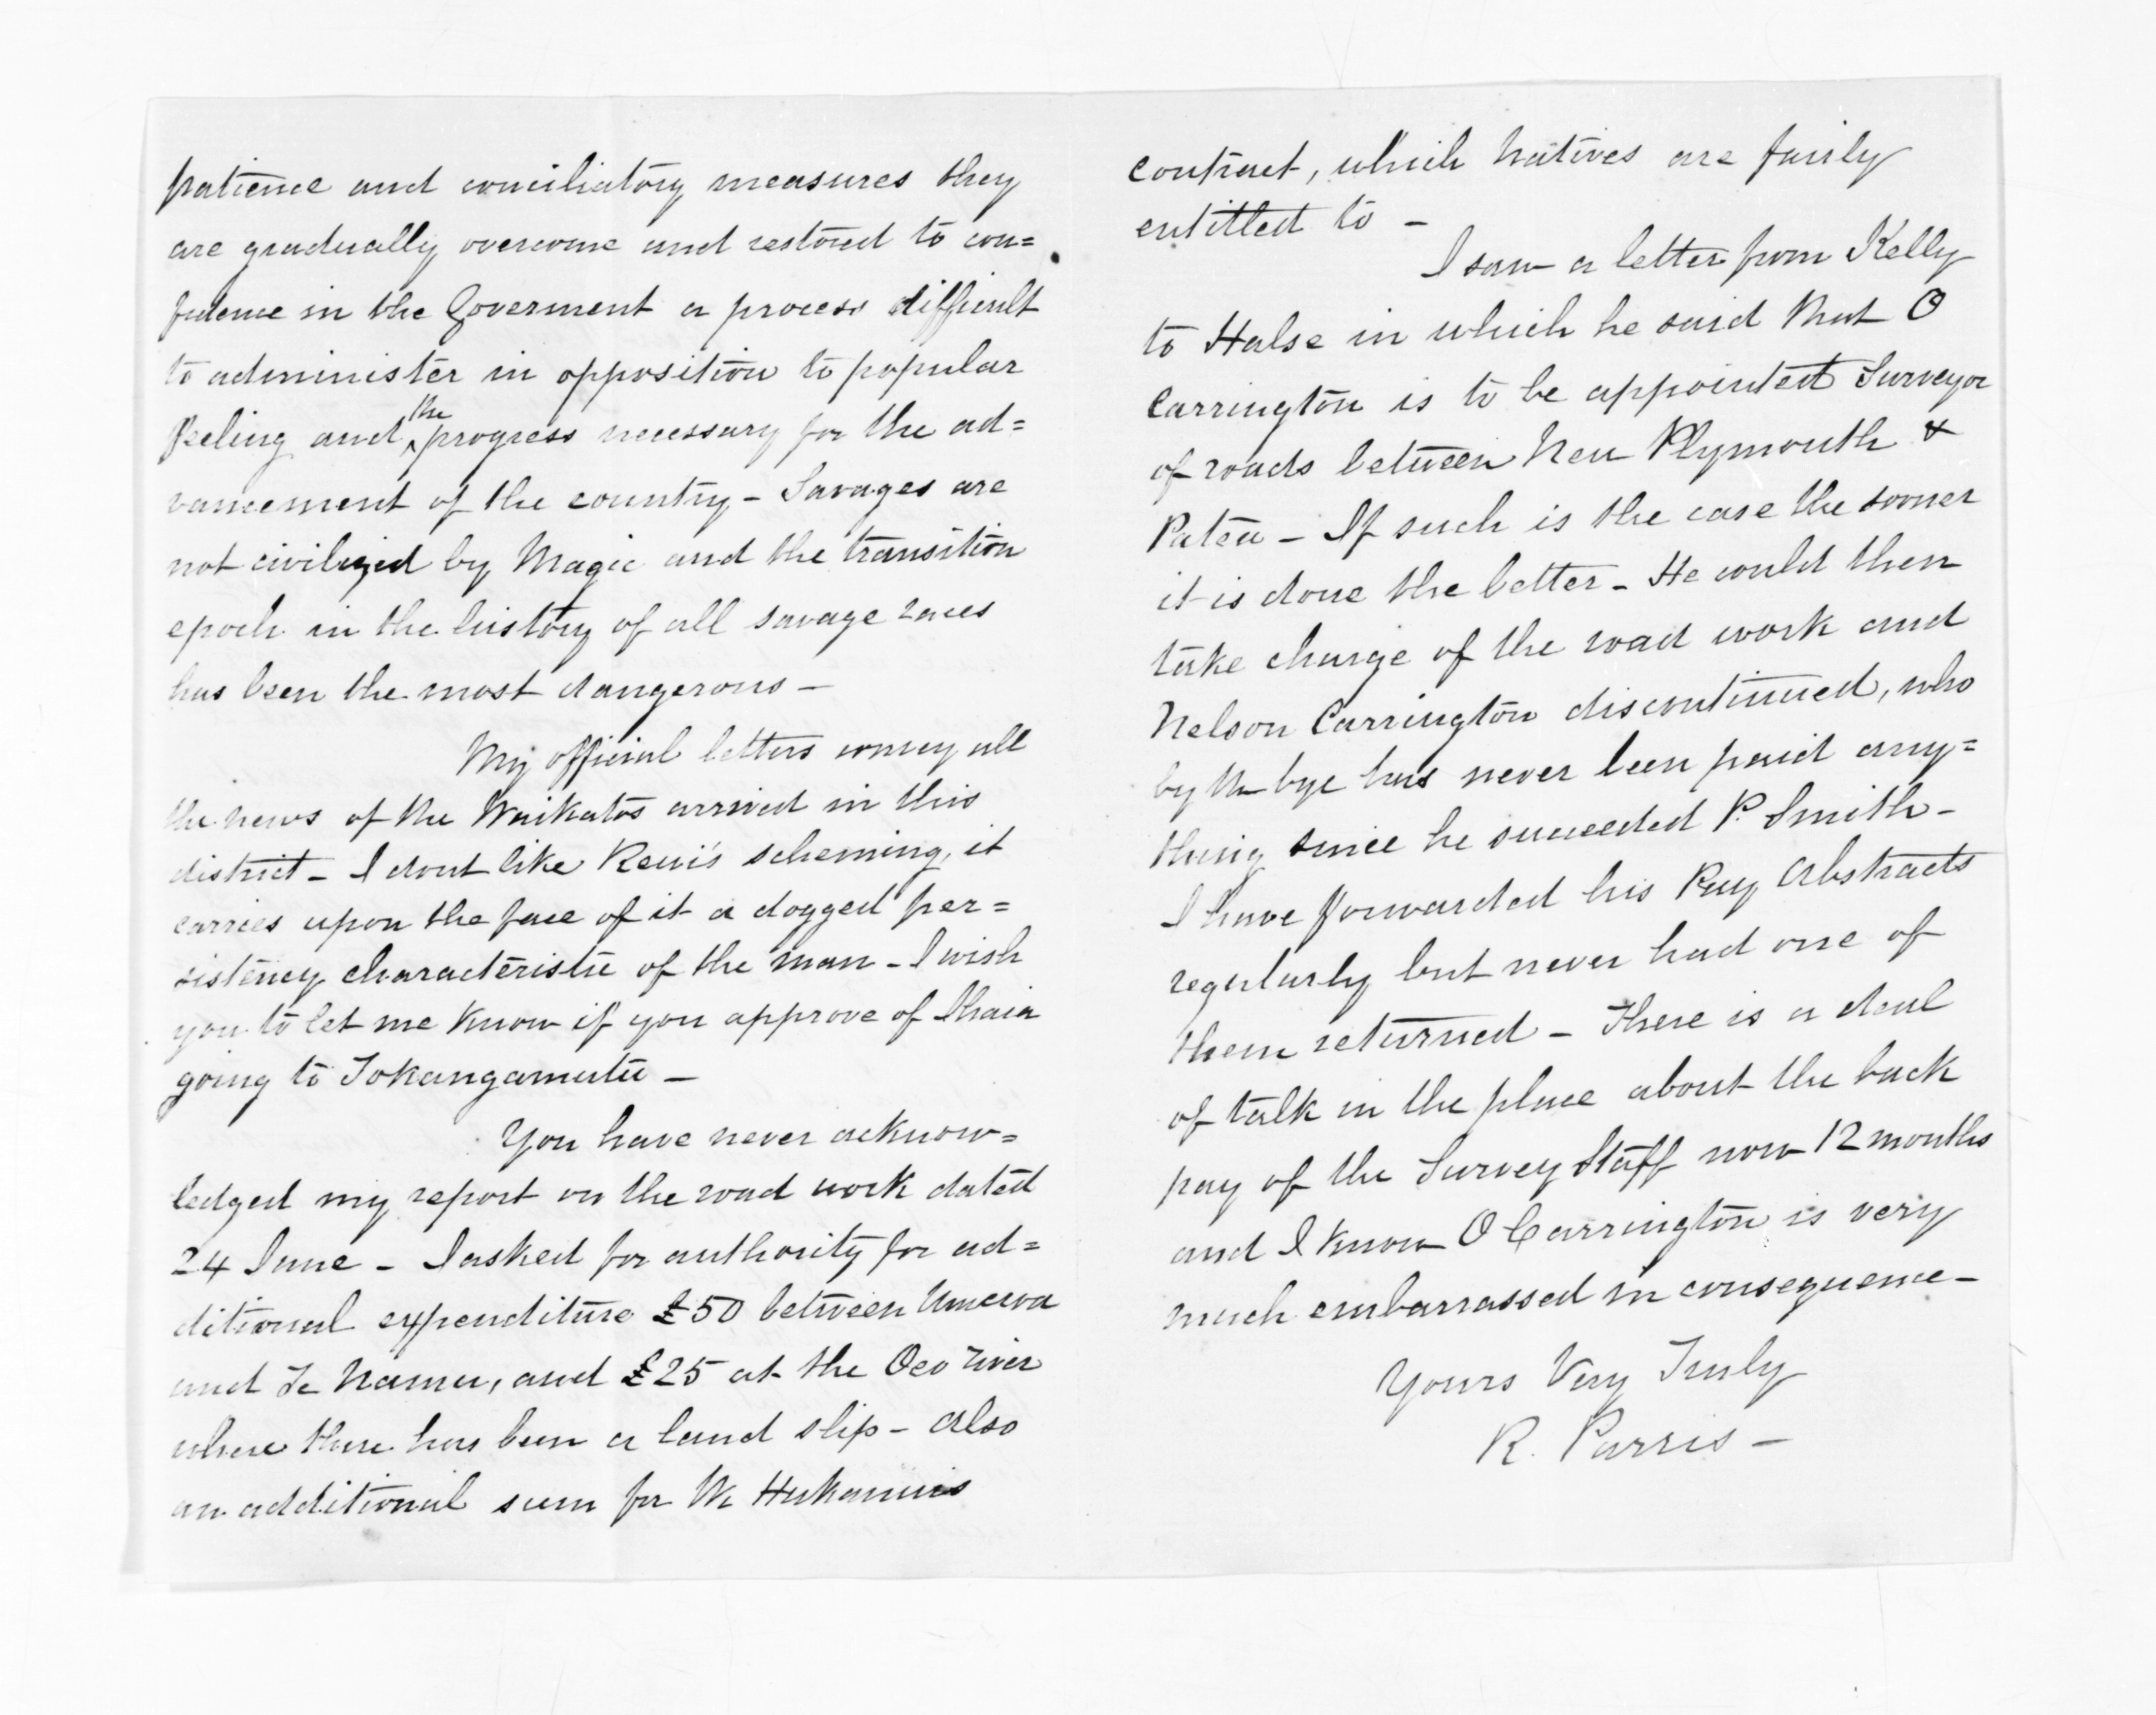 patience and conciliatory measures they
are gradually overcome and restored to con=
fidence in the Goverment a process difficult
to administer in opposition to popular
feeling and the progress necessary for the ad=
vancement of the country - Savages are
not civilized by Magic and the transition
epoch in the history of all savage races
has been the most dangerous -
My official letters convey all
the news of the Waikatos arrived in this
district - I dont like Rewi's scheming, it
carries upon the face of it a dogged per=
sistency characteristic of the man - I wish
you to let me know if you approve of Ihaia
going to Tokangamutu -
You have never acknow=
ledged my report on the road work dated
24 June - I asked for authority for ad=
ditional expenditure £50 between Umeroa
and Te Namu, and £25 at the Oeo river
where there has been a land slip - also
an additional sum for Wi Hukanuis
contract, which Natives are fairly
entitled to -
I saw a letter from Kelly
to Halse in which he said that O
Carrington is to be appointed Surveyor
of roads between New Plymouth &
Patea - If such is the case the sooner
it is done the better - He could then
take charge of the road work and
Nelson Carrington discontinued, who
by the bye has never been paid any=
thing since he succeeded P. Smith -
I have forwarded his Pay Abstracts
regularly but never had one of
them returned - There is a deal
of talk in the place about the back
pay of the Survey Staff now 12 months
and I know O Carrington is very
much embarrassed in consequence -
Yours Very Truly
R. Parris -